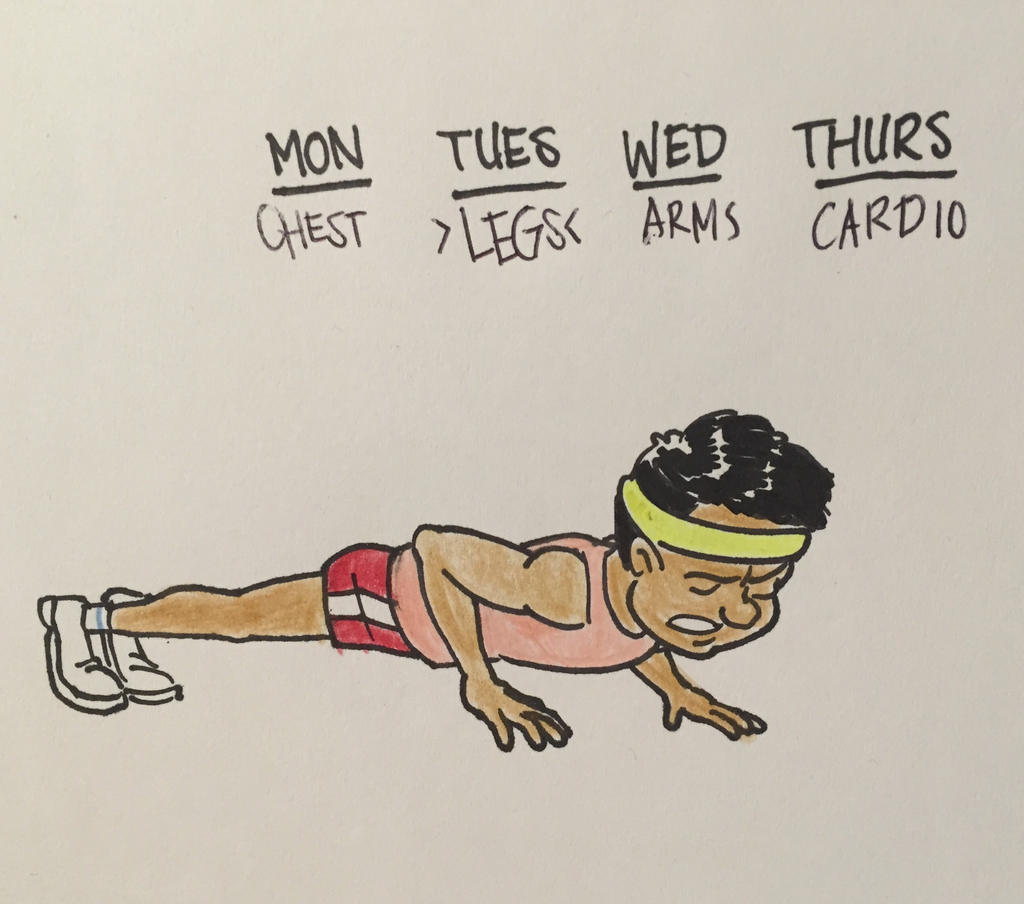 MON TUES WED THURS
CHEST >LEGS< ARMS CARDIO